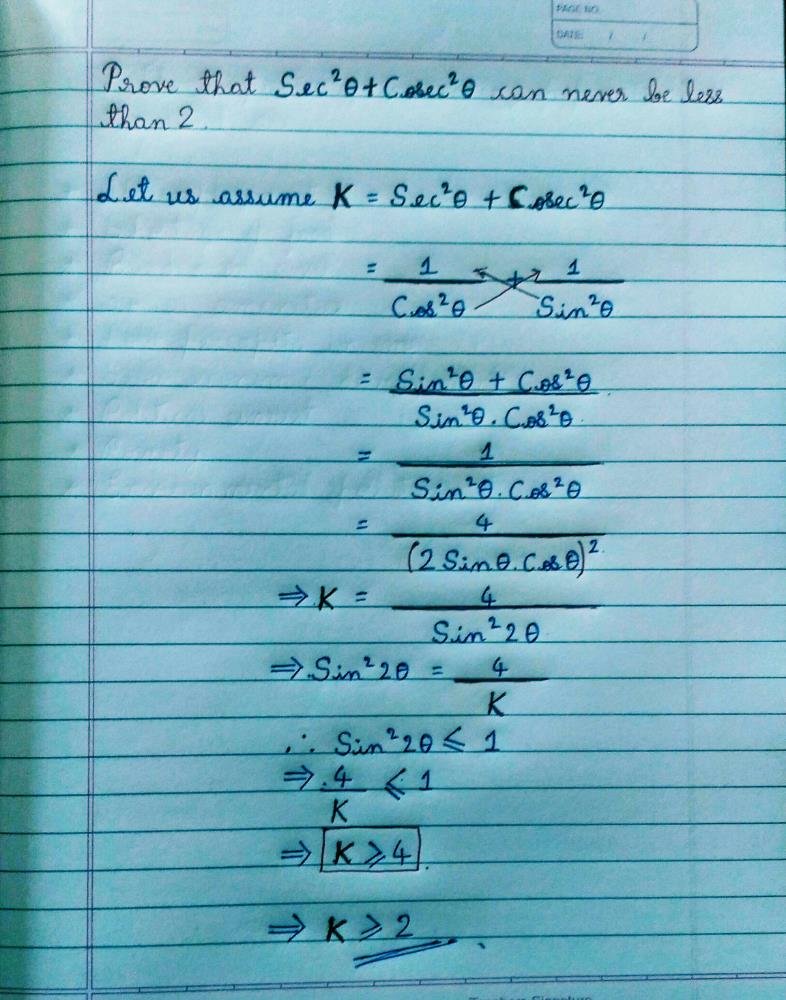 PAGE NO.
DATE: / /
Prove that Sec²θ + Cosec²θ can never be less
than 2.
Let us assume K = Sec²θ + Cosec²θ
= 1/Cos²θ + 1/Sin²θ
= Sin²θ + Cos²θ / Sin²θ . Cos²θ
= 1 / Sin²θ . Cos²θ
= 4 / (2 Sin θ . Cos θ)²
⇒ K = 4 / Sin² 2θ
⇒ Sin² 2θ = 4 / K
∴ Sin² 2θ ⩽ 1
⇒ 4 / K ⩽ 1
⇒ K ⩾ 4
⇒ K ⩾ 2